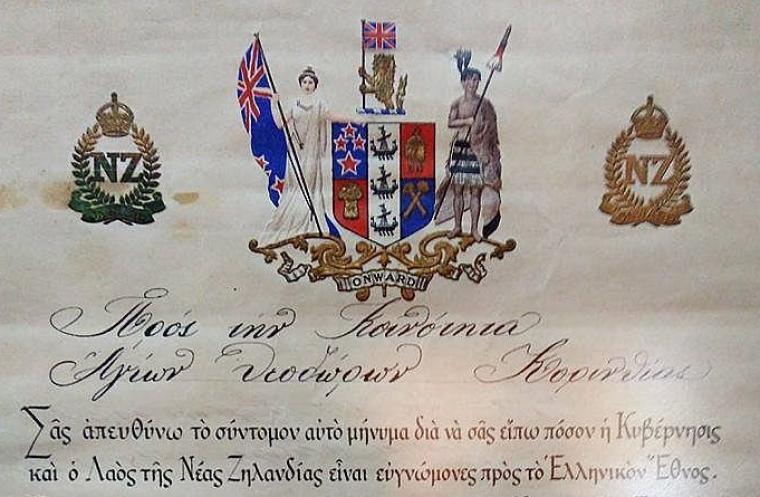 NZ
NZ
ONWARD
Πρός τήν Κοινότητα
Ἁγίων Θεοδώρων Κορινθίας
Σᾶς ἀπευθύνω τὸ σύντομον αὐτὸ μήνυμα διὰ νὰ σᾶς εἴπω πόσον ἡ Κυβέρνησις
καὶ ὁ Λαὸς τῆς Νέας Ζηλανδίας εἶναι εὐγνώμονες πρὸς τὸ Ἑλληνικὸν Ἔθνος.